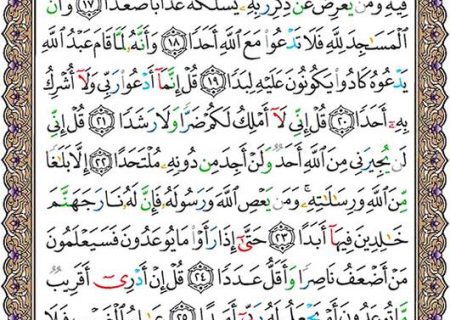 فِيهِ وَمَن يُعْرِضْ عَن ذِكْرِ رَبِّهِۦ يَسْلُكْهُ عَذَابًا صَعَدًا ١٧ وَأَنَّ
ٱلْمَسَٰجِدَ لِلَّهِ فَلَا تَدْعُوا۟ مَعَ ٱللَّهِ أَحَدًا ١٨ وَأَنَّهُۥ لَمَّا قَامَ عَبْدُ ٱللَّهِ
يَدْعُوهُ كَادُوا۟ يَكُونُونَ عَلَيْهِ لِبَدًا ١٩ قُلْ إِنَّمَآ أَدْعُوا۟ رَبِّى وَلَآ أُشْرِكُ
بِهِۦٓ أَحَدًا ٢٠ قُلْ إِنِّى لَآ أَمْلِكُ لَكُمْ ضَرًّا وَلَا رَشَدًا ٢١ قُلْ إِنِّى
لَن يُجِيرَنِى مِنَ ٱللَّهِ أَحَدٌ وَلَنْ أَجِدَ مِن دُونِهِۦ مُلْتَحَدًا ٢٢ إِلَّا بَلَٰغًا
مِّنَ ٱللَّهِ وَرِسَٰلَٰتِهِۦ ۚ وَمَن يَعْصِ ٱللَّهَ وَرَسُولَهُۥ فَإِنَّ لَهُۥ نَارَ جَهَنَّمَ
خَٰلِدِينَ فِيهَآ أَبَدًا ٢٣ حَتَّىٰٓ إِذَا رَأَوْا۟ مَا يُوعَدُونَ فَسَيَعْلَمُونَ
مَنْ أَضْعَفُ نَاصِرًا وَأَقَلُّ عَدَدًا ٢٤ قُلْ إِنْ أَدْرِىٓ أَقَرِيبٌ
مَّا تُوعَدُونَ أَمْ يَجْعَلُ لَهُۥ رَبِّىٓ أَمَدًا ٢٥ عَٰلِمُ ٱلْغَيْبِ فَلَا